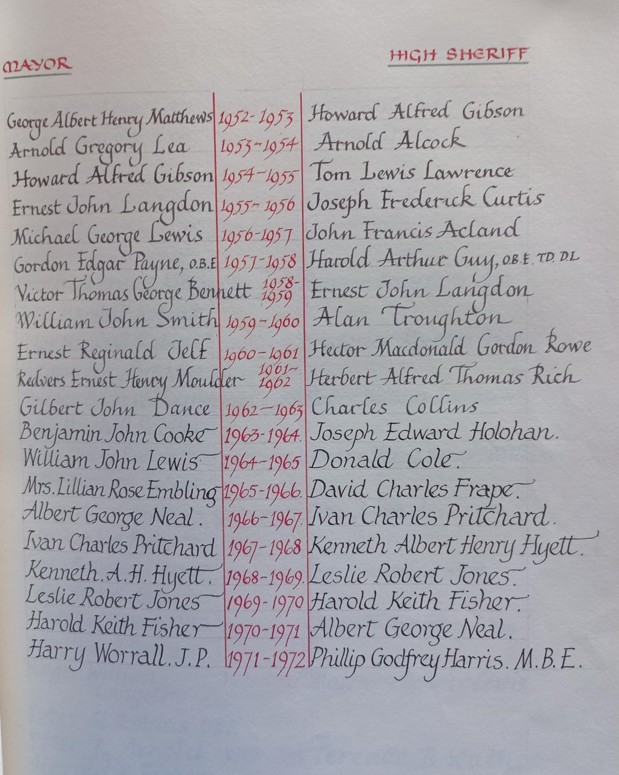 MAYOR HIGH SHERIFF
George Albert Henry Matthews 1952-1953 Howard Alfred Gibson
Arnold Gregory Lea 1953-1954 Arnold Alcock
Howard Alfred Gibson 1954-1955 Tom Lewis Lawrence
Ernest John Langdon 1955-1956 Joseph Frederick Curtis
Michael George Lewis 1956-1957 John Francis Acland
Gordon Edgar Payne, O.B.E 1957-1958 Harold Arthur Guy, O.B.E. TD. DL
Victor Thomas George Bennett 1958-1959 Ernest John Langdon
William John Smith 1959-1960 Alan Troughton
Ernest Reginald Jelf 1960-1961 Hector Macdonald Gordon Rowe
Redvers Ernest Henry Moulder 1961-1962 Herbert Alfred Thomas Rich
Gilbert John Dance 1962-1963 Charles Collins
Benjamin John Cooke 1963-1964. Joseph Edward Holohan.
William John Lewis 1964-1965 Donald Cole.
Mrs. Lillian Rose Embling 1965-1966. David Charles Frape.
Albert George Neal. 1966-1967. Ivan Charles Pritchard.
Ivan Charles Pritchard 1967-1968 Kenneth Albert Henry Hyett.
Kenneth. A.H. Hyett. 1968-1969. Leslie Robert Jones.
Leslie Robert Jones 1969-1970 Harold Keith Fisher.
Harold Keith Fisher 1970-1971 Albert George Neal.
Harry Worrall. J.P. 1971-1972 Phillip Godfrey Harris. M.B.E.